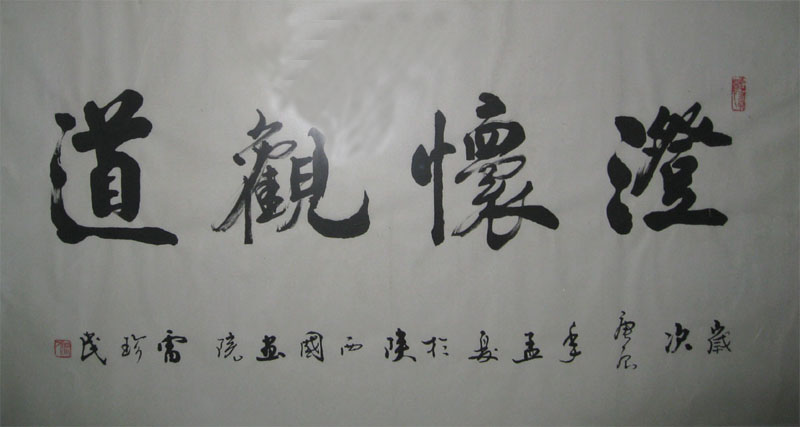 澄懷觀道
歲次庚辰年孟夏於陝西國畫院雷珍民